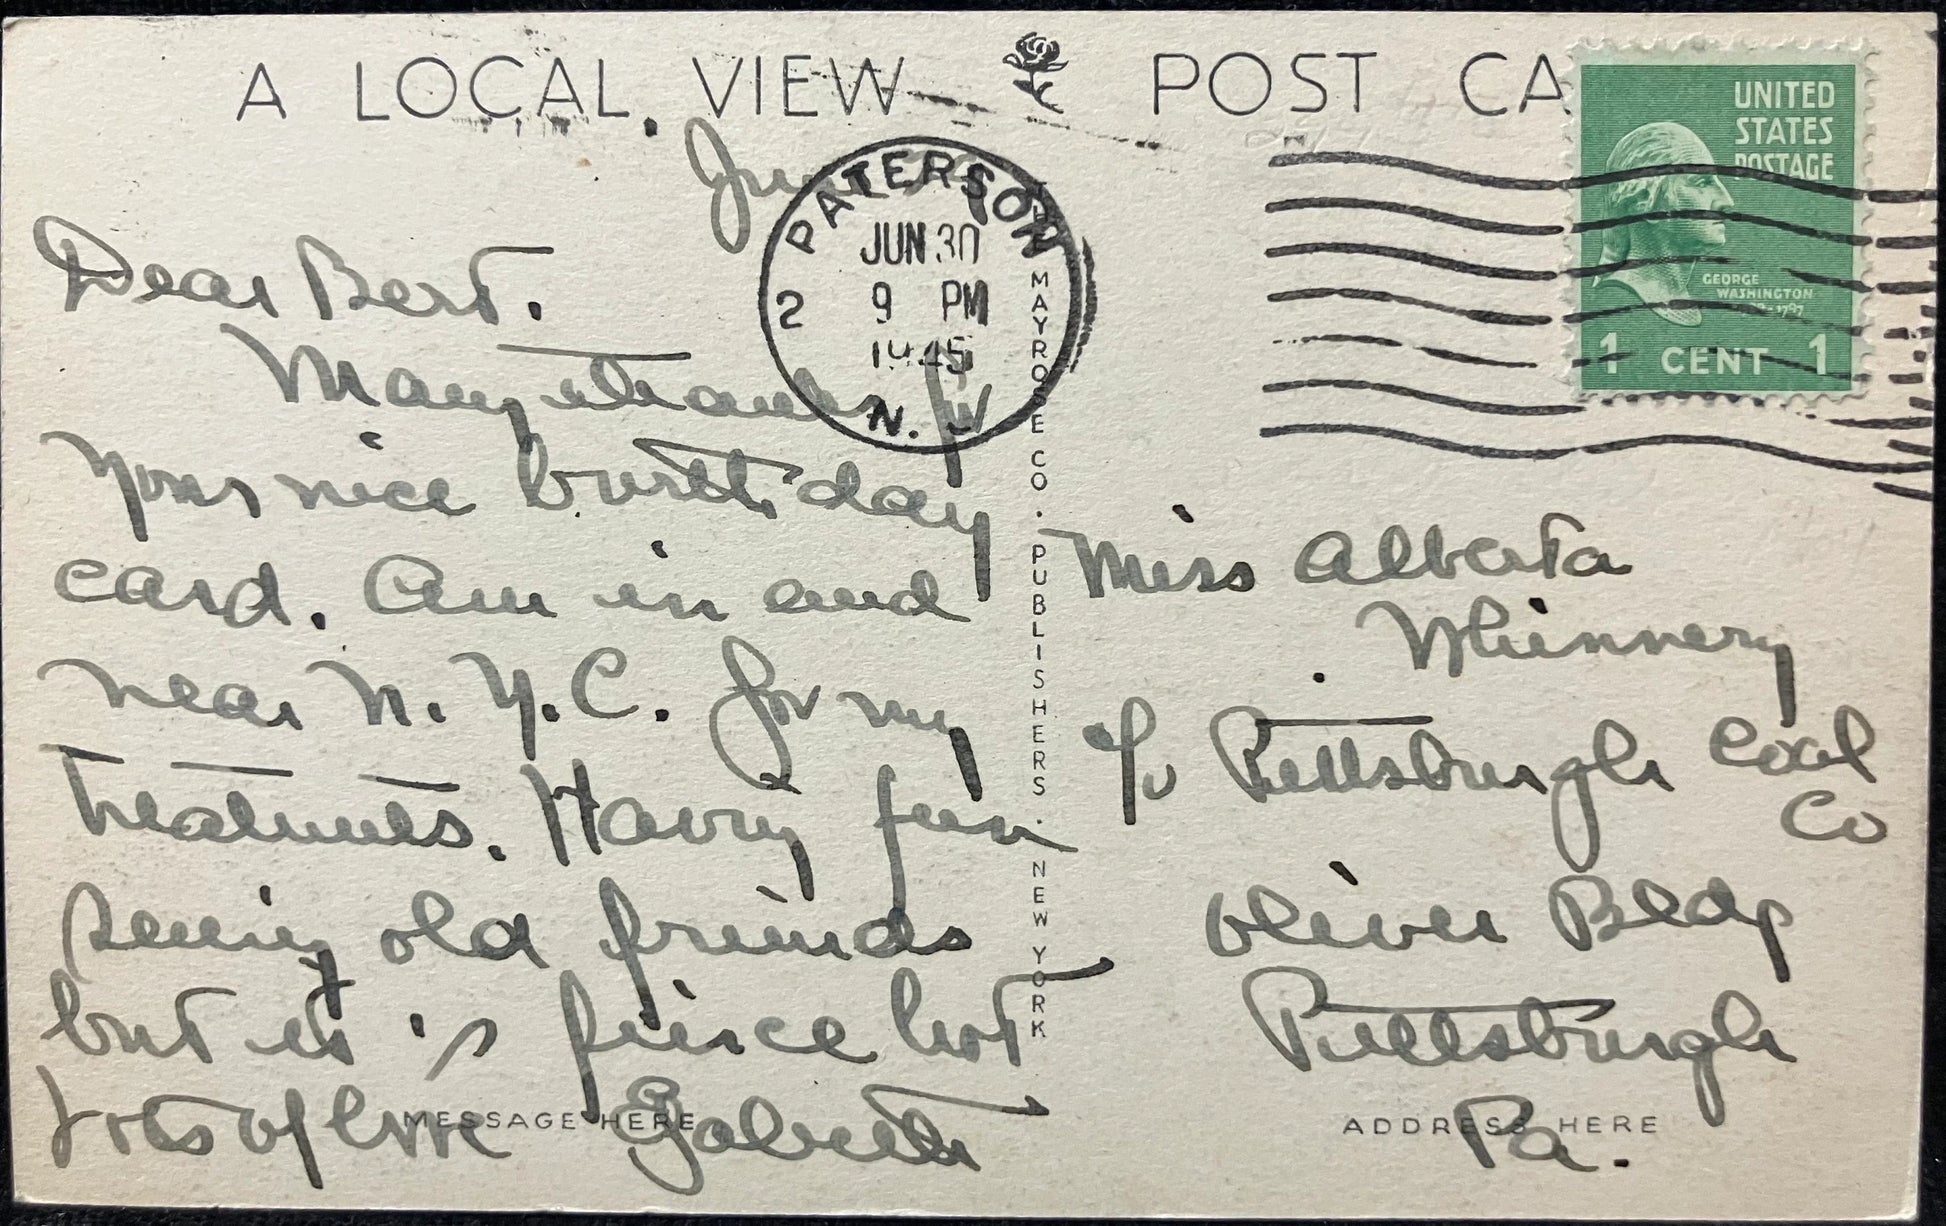 A LOCAL VIEW POST CA
UNITED
STATES
POSTAGE
GEORGE
WASHINGTON
1 CENT 1
PATERSON
2
JUN 30
9 PM
1945
N. J.
Dear Bert.
Many thanks for
your nice birthday
card. Am in and
near N.Y.C. for my
treatments. Having fun
seeing old friends
but it is fierce hot
Lots of love
MESSAGE HERE
MAYROSE CO. PUBLISHERS. NEW YORK
Miss Alberta
Whinnery
c/o Pittsburgh Coal
Co
Oliver Bldg
Pittsburgh
Pa.
ADDRESS HERE